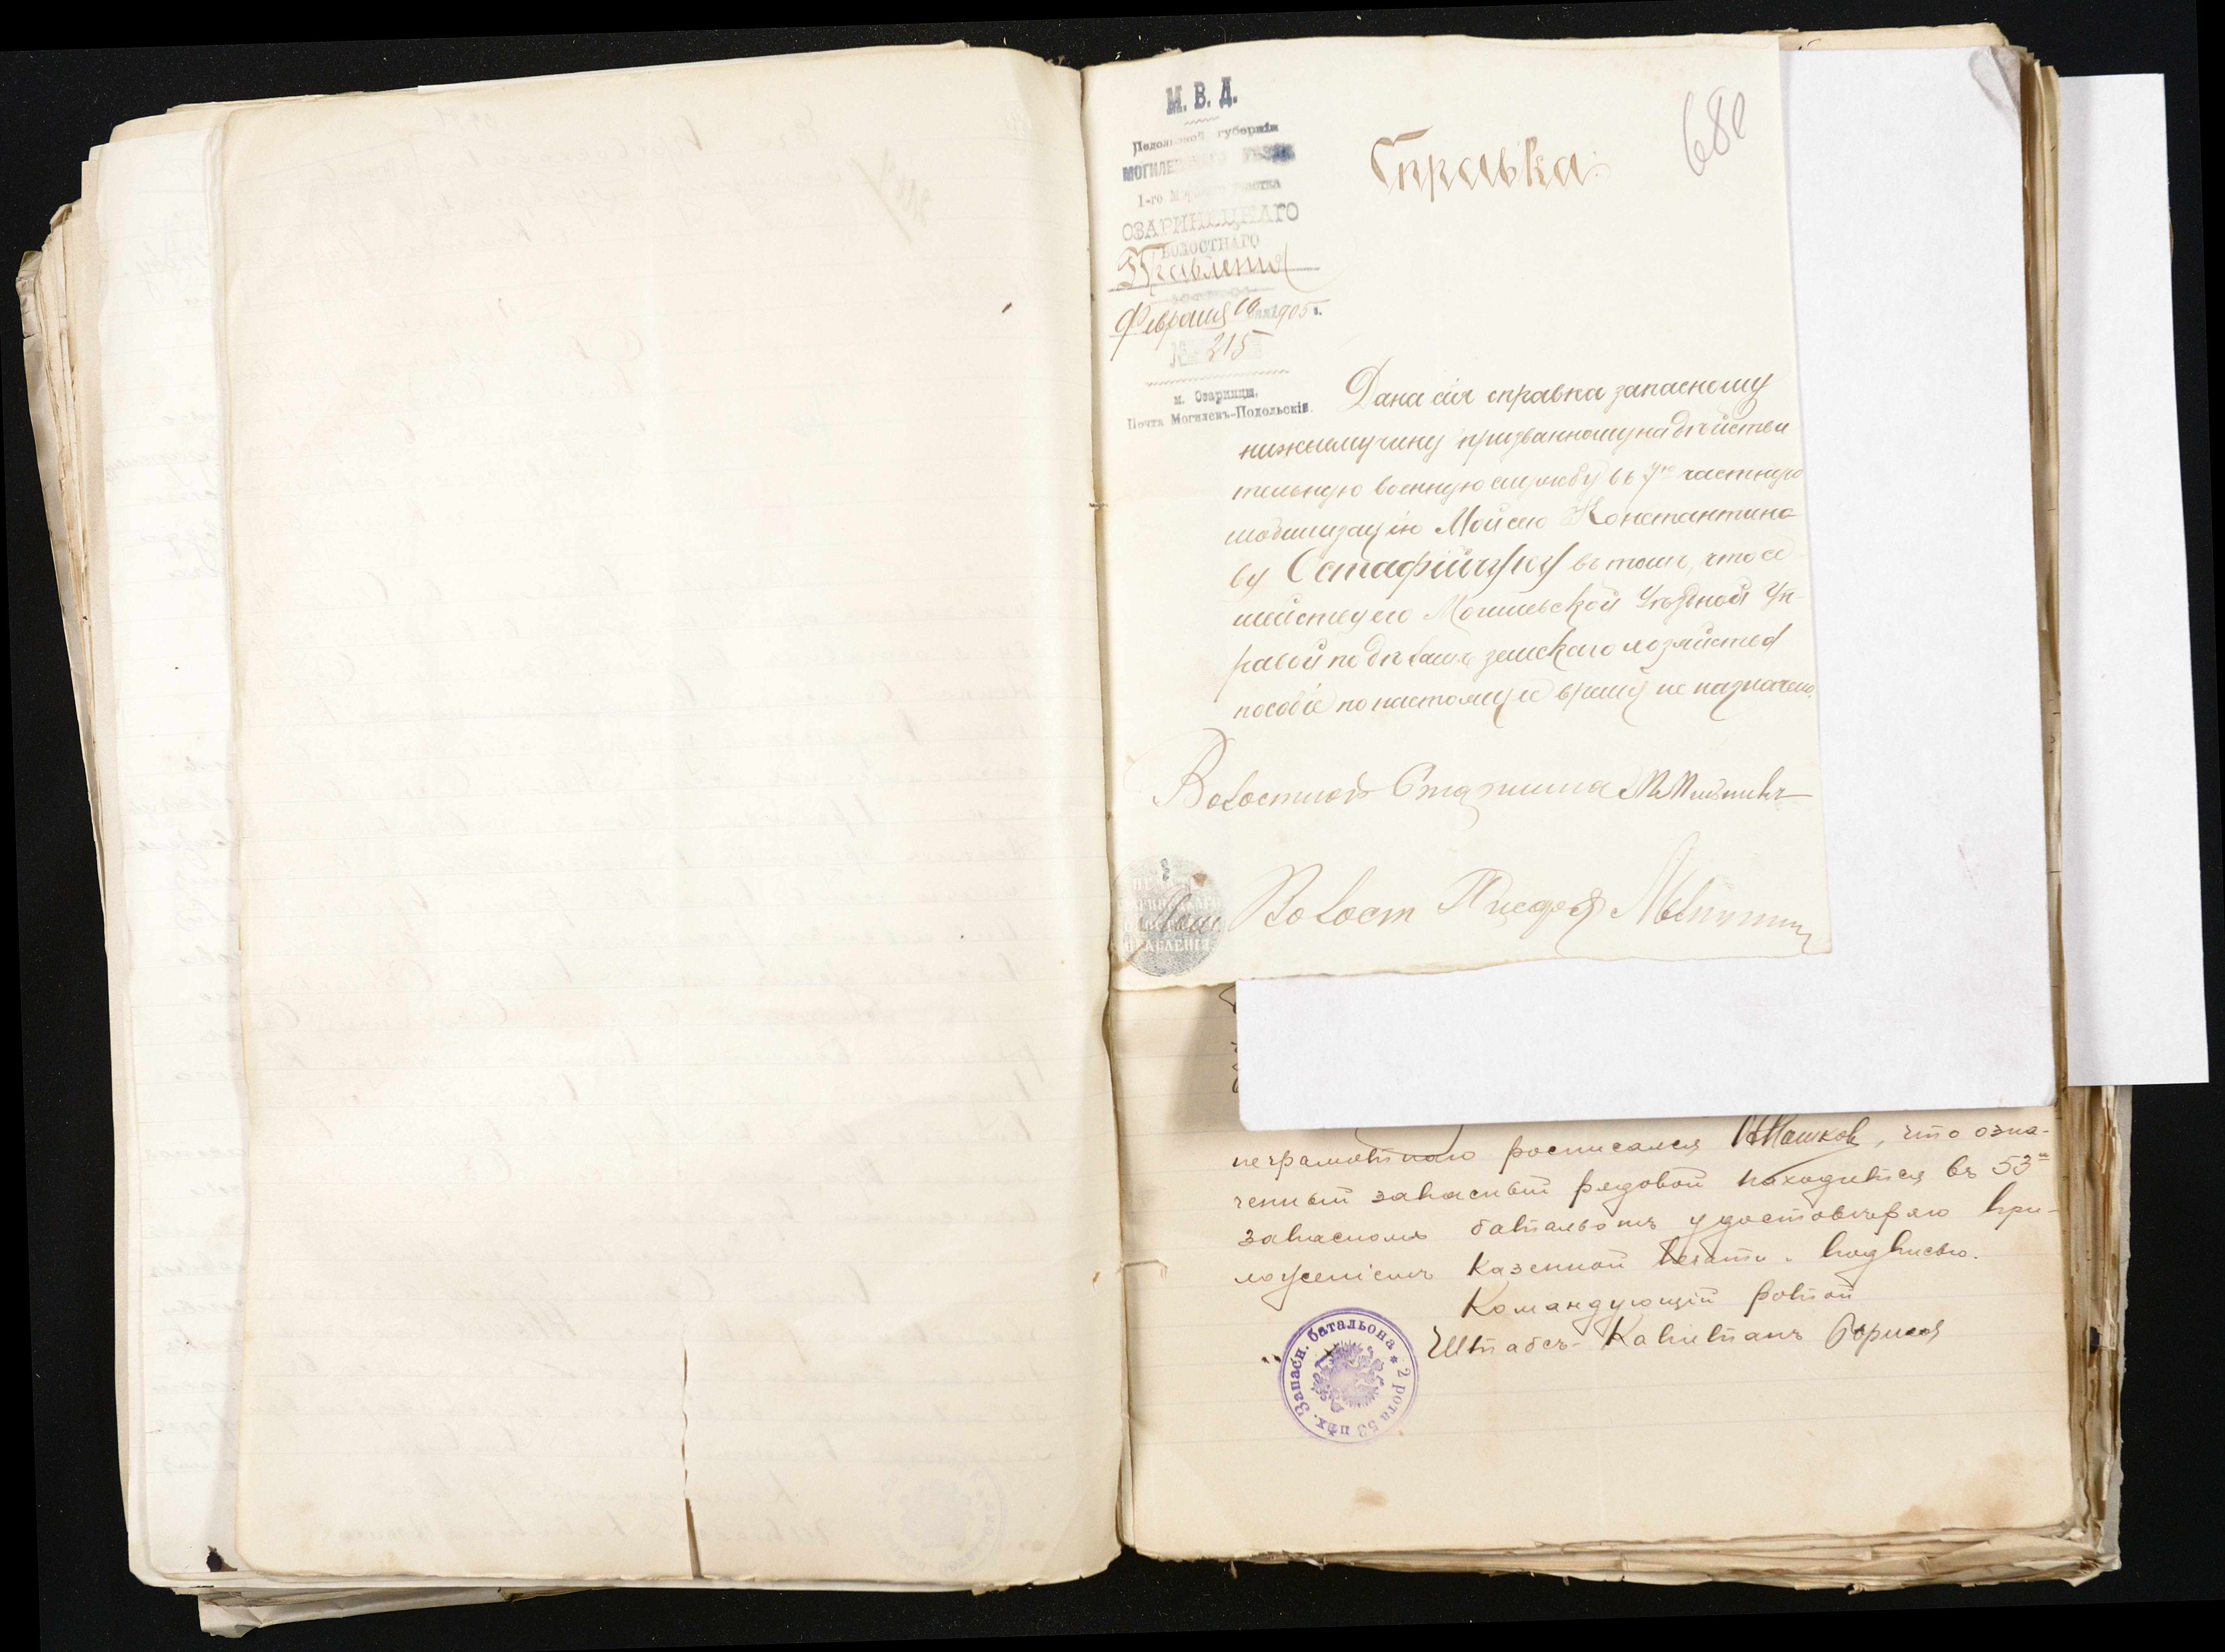 М. В. Д.
Подольской губерніи
МОГИЛЕВСКАГО УѢЗДА
1-го Мирового участка
ОЗАРИНЕЦКАГО
ВОЛОСТНАГО
Правленія
Февраля 19 дня 1905 г.
№ 215
м. Озаринцы.
Почта Могилевъ-Подольскій.
680
Справка.
Дана сія справка запасному
нижнему чину призванному на дѣйстви
тельную военную службу въ 7ю частную
мобилизацію Мойсею Константино-
ву Остафійчуку въ томъ, что се-
мейству его Могилевской Уѣздной Уп-
равой по дѣламъ земскаго хозяйства
пособіе по настоящее время не назначено.
Волостной Старшина
Волост Писарь
ПРАВЛЕНІЯ
неграмотнаго росписался Машков, что озна-
ченный запасный рядовой находится въ 53мъ
запасномъ баталіонѣ удостовѣряю при-
ложеніемъ казенной печати и подписью.
Командующій ротой
Штабсъ-Капитанъ
2 рота 53 пѣх. Запасн. батальона